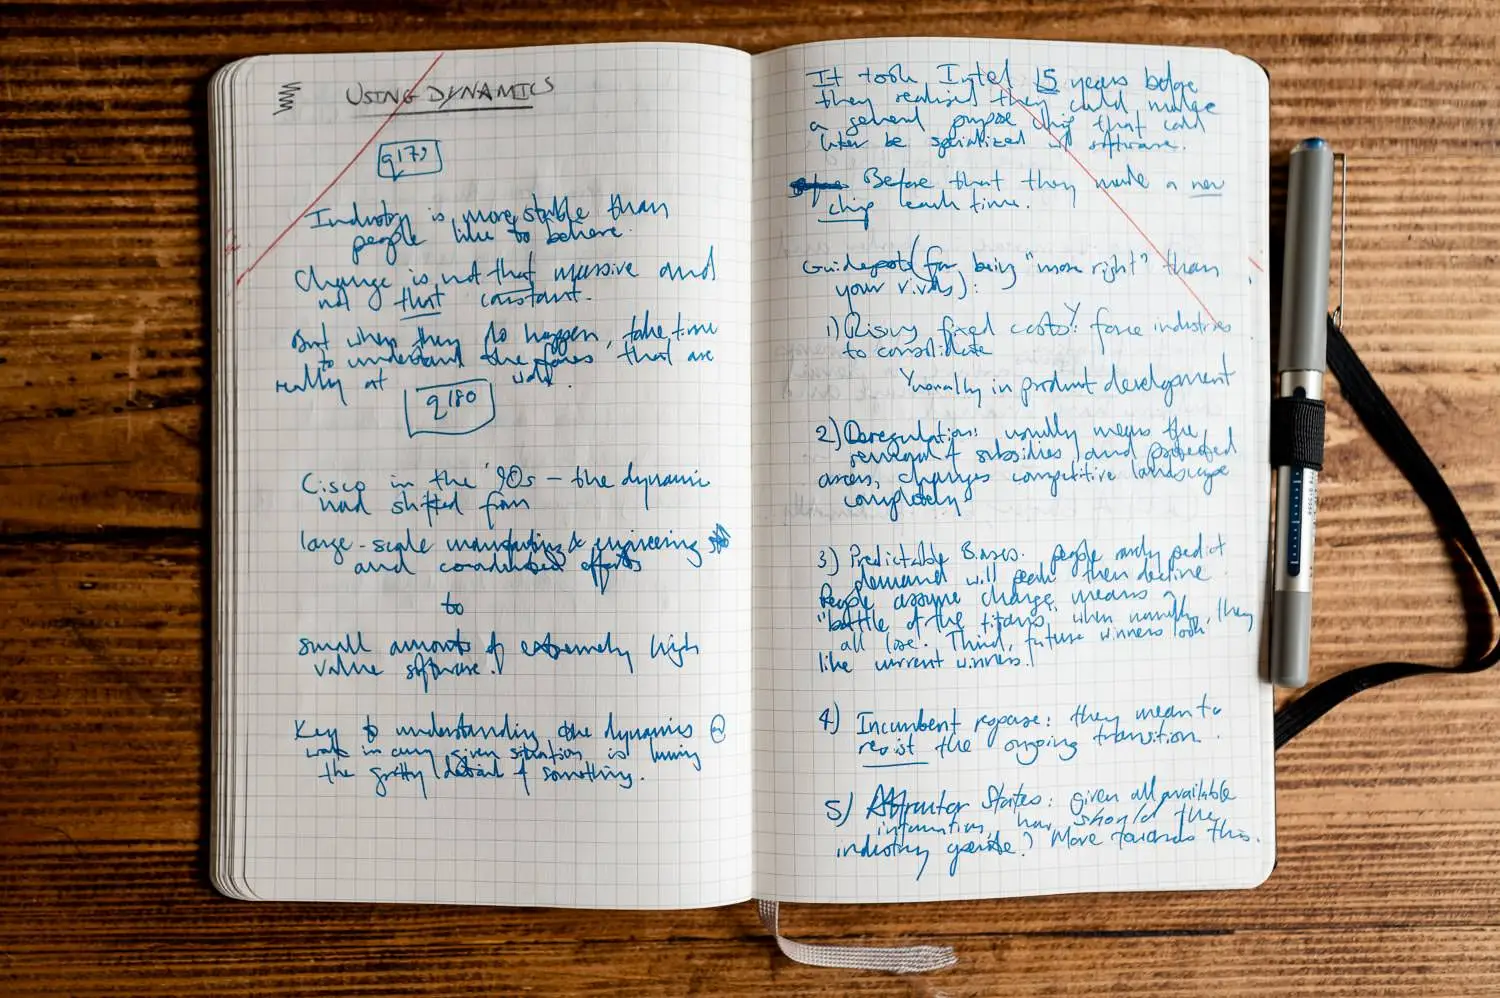 USING DYNAMICS
q179
Industry is more stable than
people like to believe.
Change is not that massive and
not that constant.
But when they do happen, take time
to understand the forces that are
really at work.
q180
Cisco in the '90s – the dynamic
had shifted from
large-scale & engineering
and coordinated efforts
to
small amounts of extremely high
value software.
Key to understanding the dynamics @
work in any given situation is knowing
the gritty detail of something.
It took Intel 15 years before
they realised they could make
a general purpose chip that could
later be specialized w/ software.
Before that they made a new
chip each time.
Guideposts (for being "more right" than
your rivals):
1) Rising fixed costs: force industries
to consolidate
usually in product development
2) Deregulation: usually means the
removal of subsidies and protected
areas, changes competitive landscape
completely
3) Predictable Biases. people rarely predict
demand will peak then decline.
People assume change means a
"battle of the titans, when normally, they
all lose. Third, future winners look
like current winners.
4) Incumbent response: they mean to
resist the ongoing transition.
5) Attractor States: Given all available
information, how should the
industry operate? Move towards this.